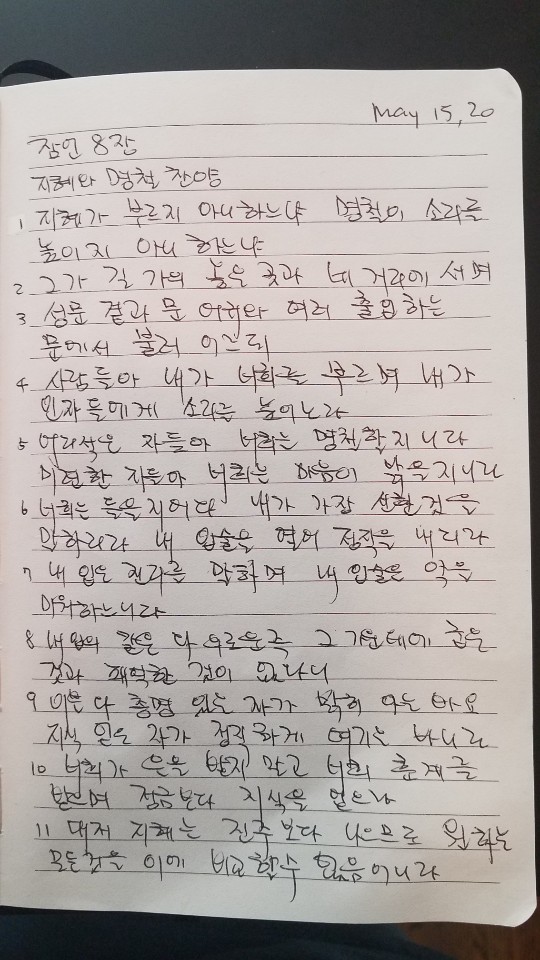 May 15, 20
잠언 8장
지혜와 명철 찬양
1 지혜가 부르지 아니하느냐 명철이 소리를
높이지 아니 하느냐
2 그가 길 가의 높은 곳과 네 거리에 서며
3 성문 곁과 문 어귀와 여러 출입하는
문에서 불러 이르되
4 사람들아 내가 너희를 부르며 내가
인자들에게 소리를 높이노라
5 어리석은 자들아 너희는 명철할지니라
미련한 자들아 너희는 마음이 밝을지니라
6 너희는 들을지어다 내가 가장 선한 것을
말하리라 내 입술을 열어 정직을 내리라
7 내 입은 진리를 말하며 내 입술은 악을
미워하느니라
8 내 입의 말은 다 의로운즉 그 가운데에 굽은
것과 패역한 것이 없나니
9 이는 다 총명 있는 자가 밝히 아는 바요
지식 얻은 자가 정직하게 여기는 바니라
10 너희가 은을 받지 말고 나의 훈계를
받으며 정금보다 지식을 얻으라
11 대저 지혜는 진주보다 나으므로 원하는
모든것을 이에 비교할수 없음이니라